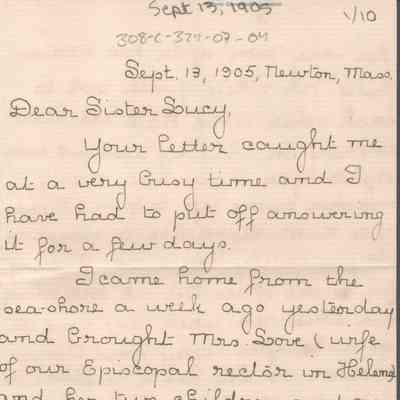 Sept 13, 1905
1/10
308-C-324-07-04
Sept. 13, 1905, Newton, Mass.
Dear Sister Lucy,
Your letter caught me
at a very busy time and I
have had to put off answering
it for a few days.
I came home from the
sea-shore a week ago yesterday
and brought Mrs. Love (wife
of our Episcopal rector in Helena)
and her two children